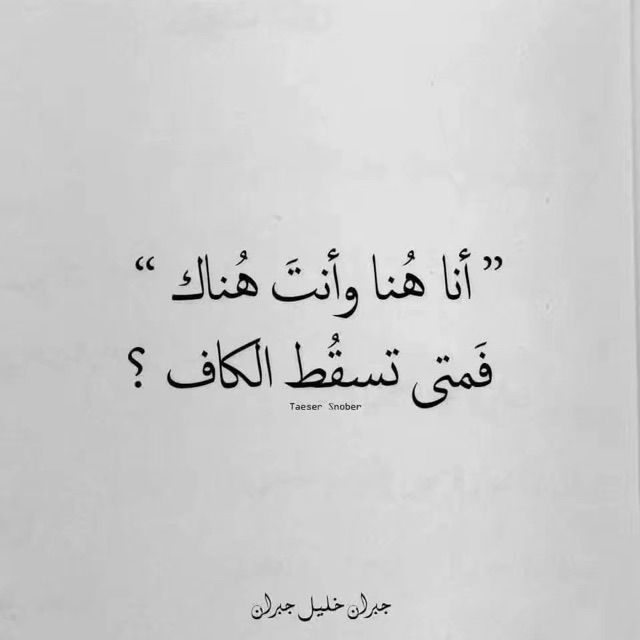 ” أنا هُنا وأنتَ هُناك “
فَمتى تسقُط الكاف ؟
Taeser Snober
جبران خليل جبران